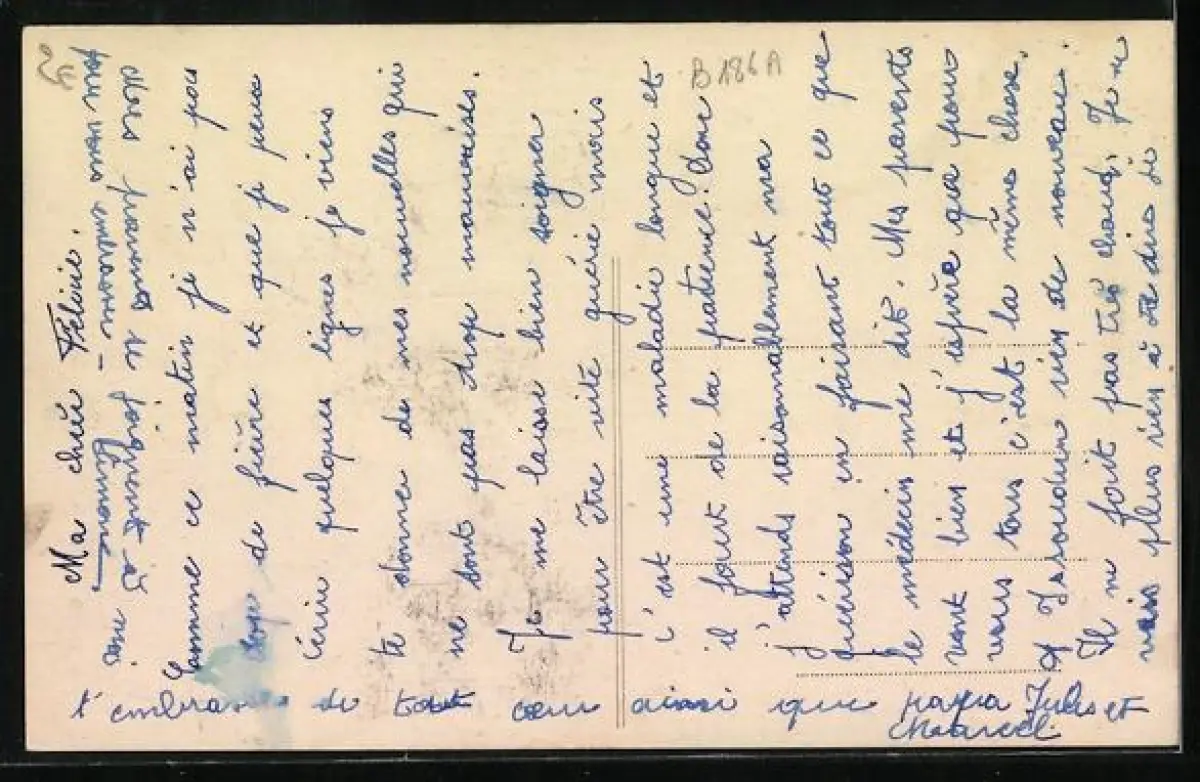 Ma chère Félicie.
Comme ce matin je n'ai pas
trop de fièvre et que je peux
écrire quelques lignes je viens
te donner de mes nouvelles qui
ne sont pas trop mauvaises.
Je me laisse bien soigner
pour être vite guérie mais
c'est une maladie longue et
il faut de la patience. Donc
j'attends raisonnablement ma
guérison en faisant tout ce que
le médecin me dit. Mes parents
vont bien et j'espère que pour
vous tous c'est la même chose.
A Issoudun rien de nouveau.
Il ne fait pas très chaud. Je ne
vais plus rien à te dire si
t'embrasser de tout cœur ainsi que papa Jules et
Marcel
mes parents se joignent à
pour vous embrasser
Simone
B 186 A